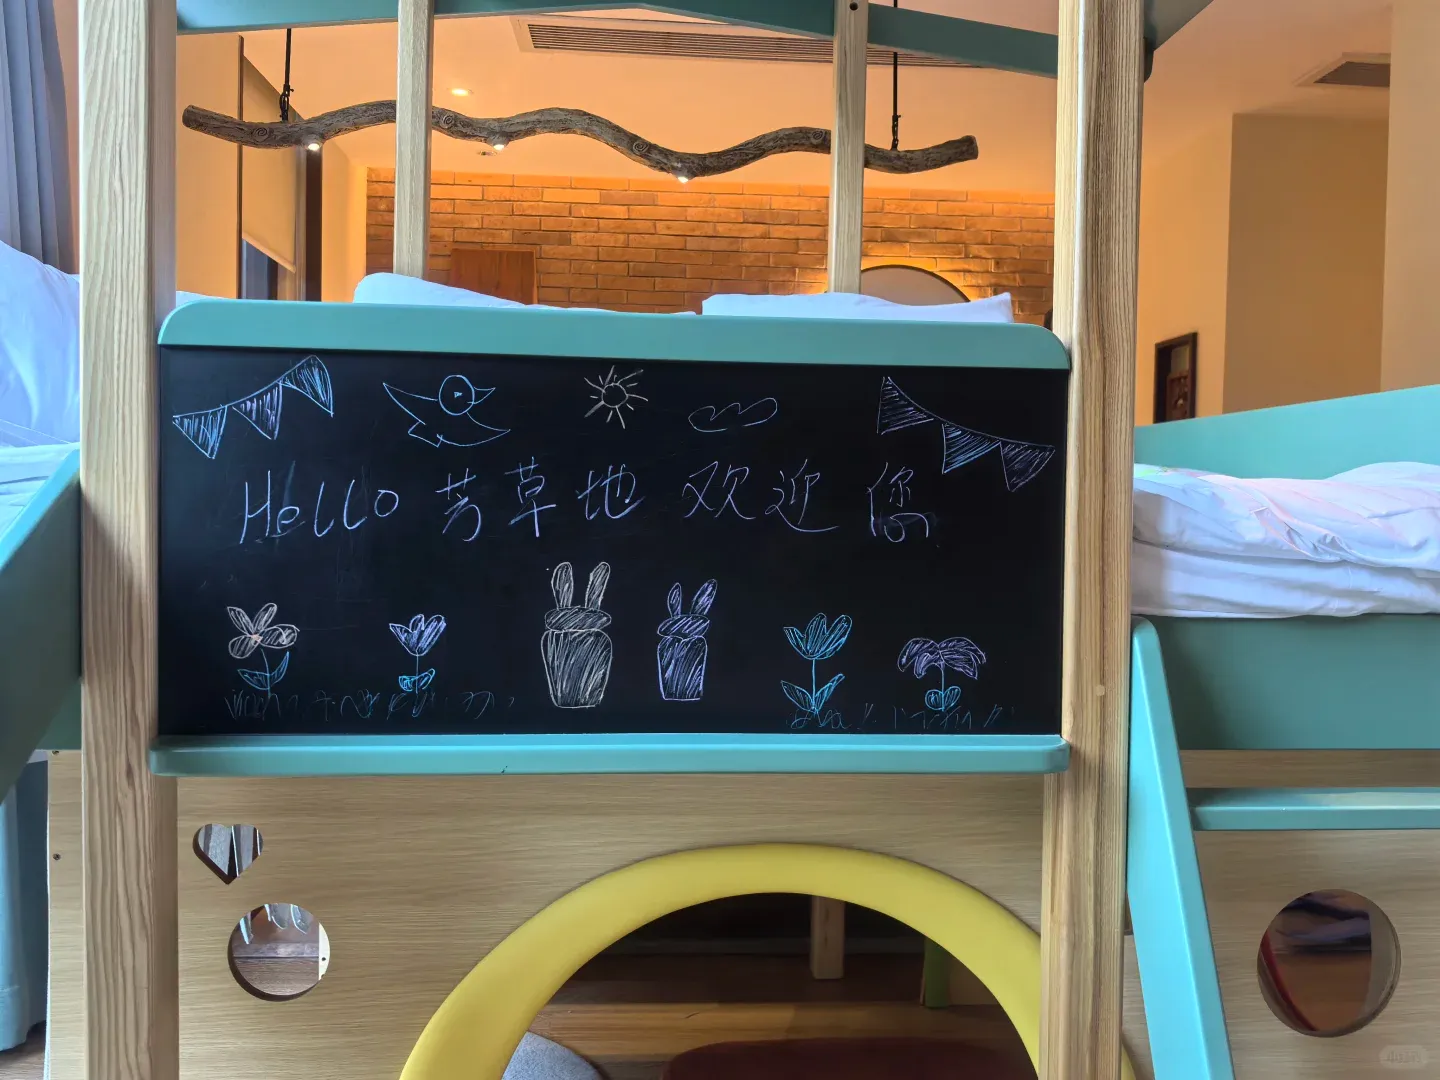 Hello 芳草地 欢迎 您